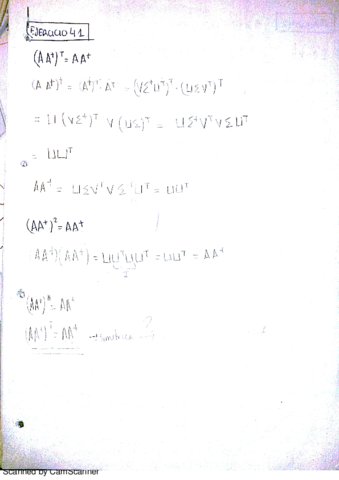 EJERCICIO 41
(AA⁺)ᵀ = AA⁺
(AA⁺)ᵀ = (A⁺)ᵀ·Aᵀ = (VΣ⁺Uᵀ)ᵀ·(UΣVᵀ)ᵀ
= U(VΣ⁺)ᵀ V(UΣ)ᵀ = UΣ⁺VᵀVΣUᵀ
= UUᵀ
AA⁺ = UΣVᵀVΣ⁻¹Uᵀ = UUᵀ
(AA⁺)² = AA⁺
(AA⁺)(AA⁺) = UUᵀUUᵀ = UUᵀ = AA⁺
I
= AA⁺
(AA⁺)ᵀ = AA⁺ → simétrica
Scanned by CamScanner